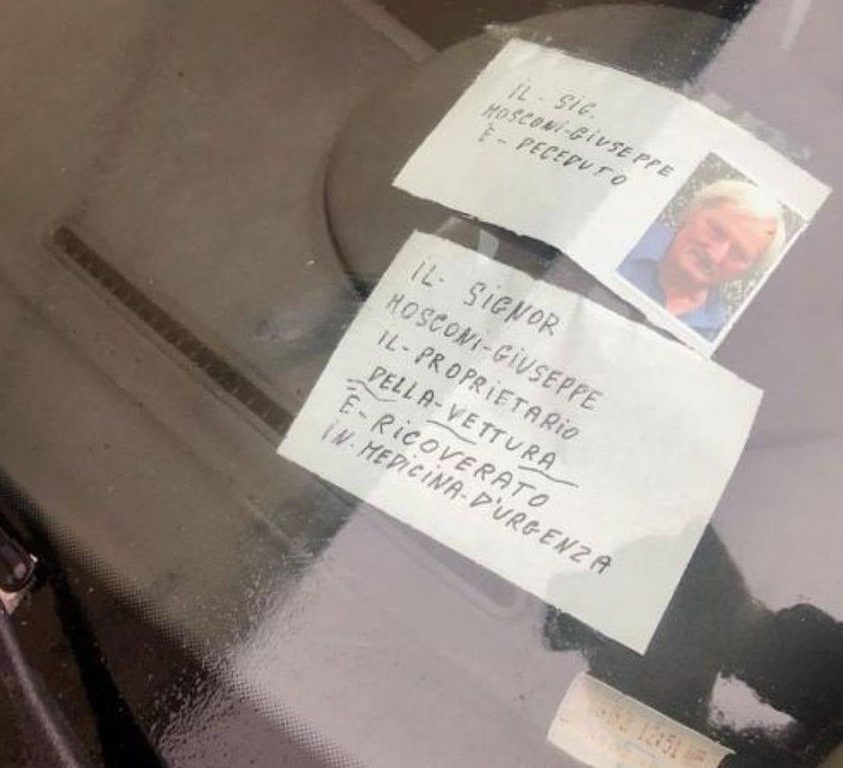 IL - SIG.
MOSCONI-GIUSEPPE
È - DECEDUTO
IL - SIGNOR
MOSCONI-GIUSEPPE
IL - PROPRIETARIO
DELLA-VETTURA
È - RICOVERATO
IN-MEDICINA-D'URGENZA
12:51